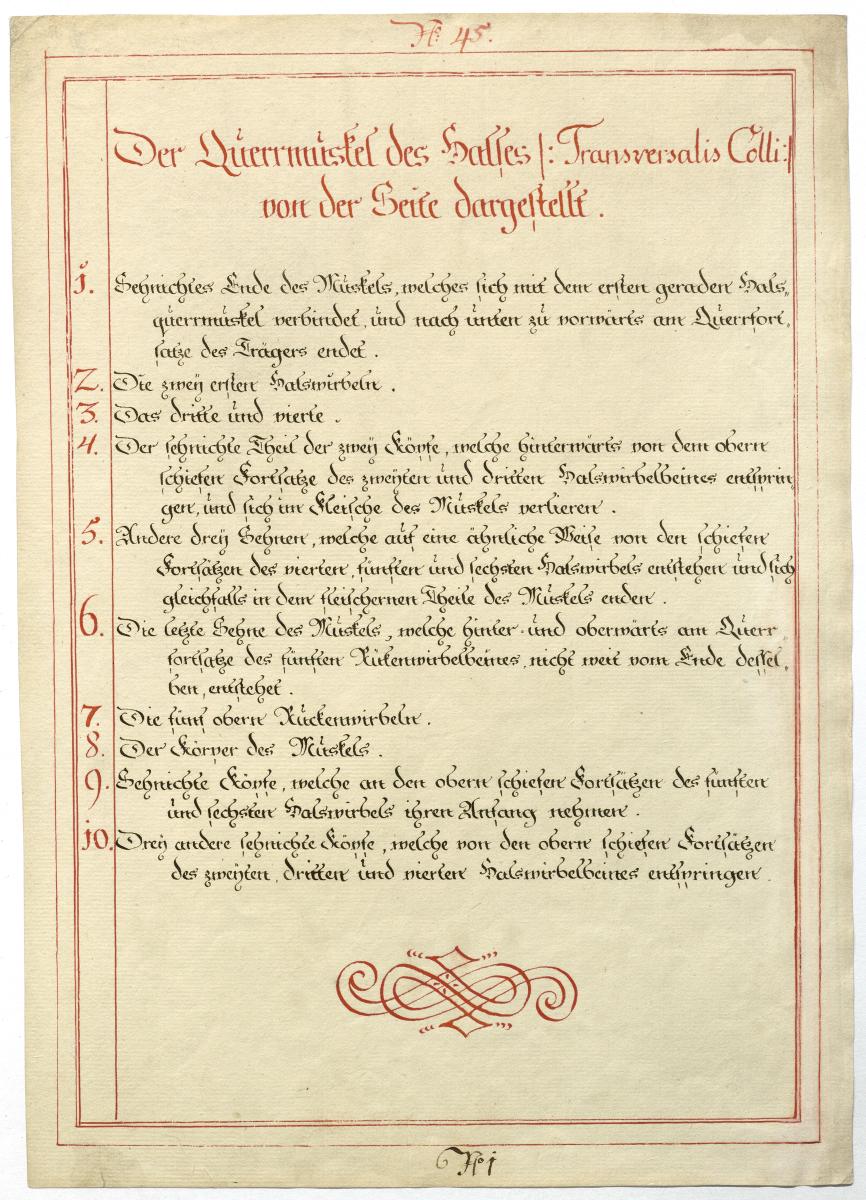 N: 45.
Der Querrmuskel des Halses |: Transversalis Colli :|
von der Seite dargestellt.
1. Sehnichtes Ende des Muskels, welches sich mit dem ersten geraden Hals-
querrmuskel verbindet, und nach unten zu vorwärts am Querrfort-
satze des Trägers endet.
2. Die zwey ersten Halswirbeln.
3. Das dritte und vierte.
4. Der sehnichte Theil der zwey Köpfe, welche hinterwärts von dem obern
schiefen Fortsatze des zweyten und dritten Halswirbelbeines entsprin-
gen, und sich im Fleische des Muskels verlieren.
5. Andere drey Sehnen, welche auf eine ähnliche Weise von den schiefen
Fortsätzen des vierten, fünften und sechsten Halswirbels entstehen und sich
gleichfalls in dem fleischernen Theile des Muskels enden.
6. Die letzte Sehne des Muskels, welche hinter- und oberwärts am Querr-
fortsatze des fünften Rükenwirbelbeines, nicht weit vom Ende dessel-
ben, entstehet.
7. Die fünf obern Rückenwirbeln.
8. Der Körper des Muskels.
9. Sehnichte Köpfe, welche an den obern schiefen Fortsätzen des fünften
und sechsten Halswirbels ihren Anfang nehmen.
10. Drey andere sehnichte Köpfe, welche von den obern schiefen Fortsätzen
des zweyten, dritten und vierten Halswirbelbeines entspringen.
No 1